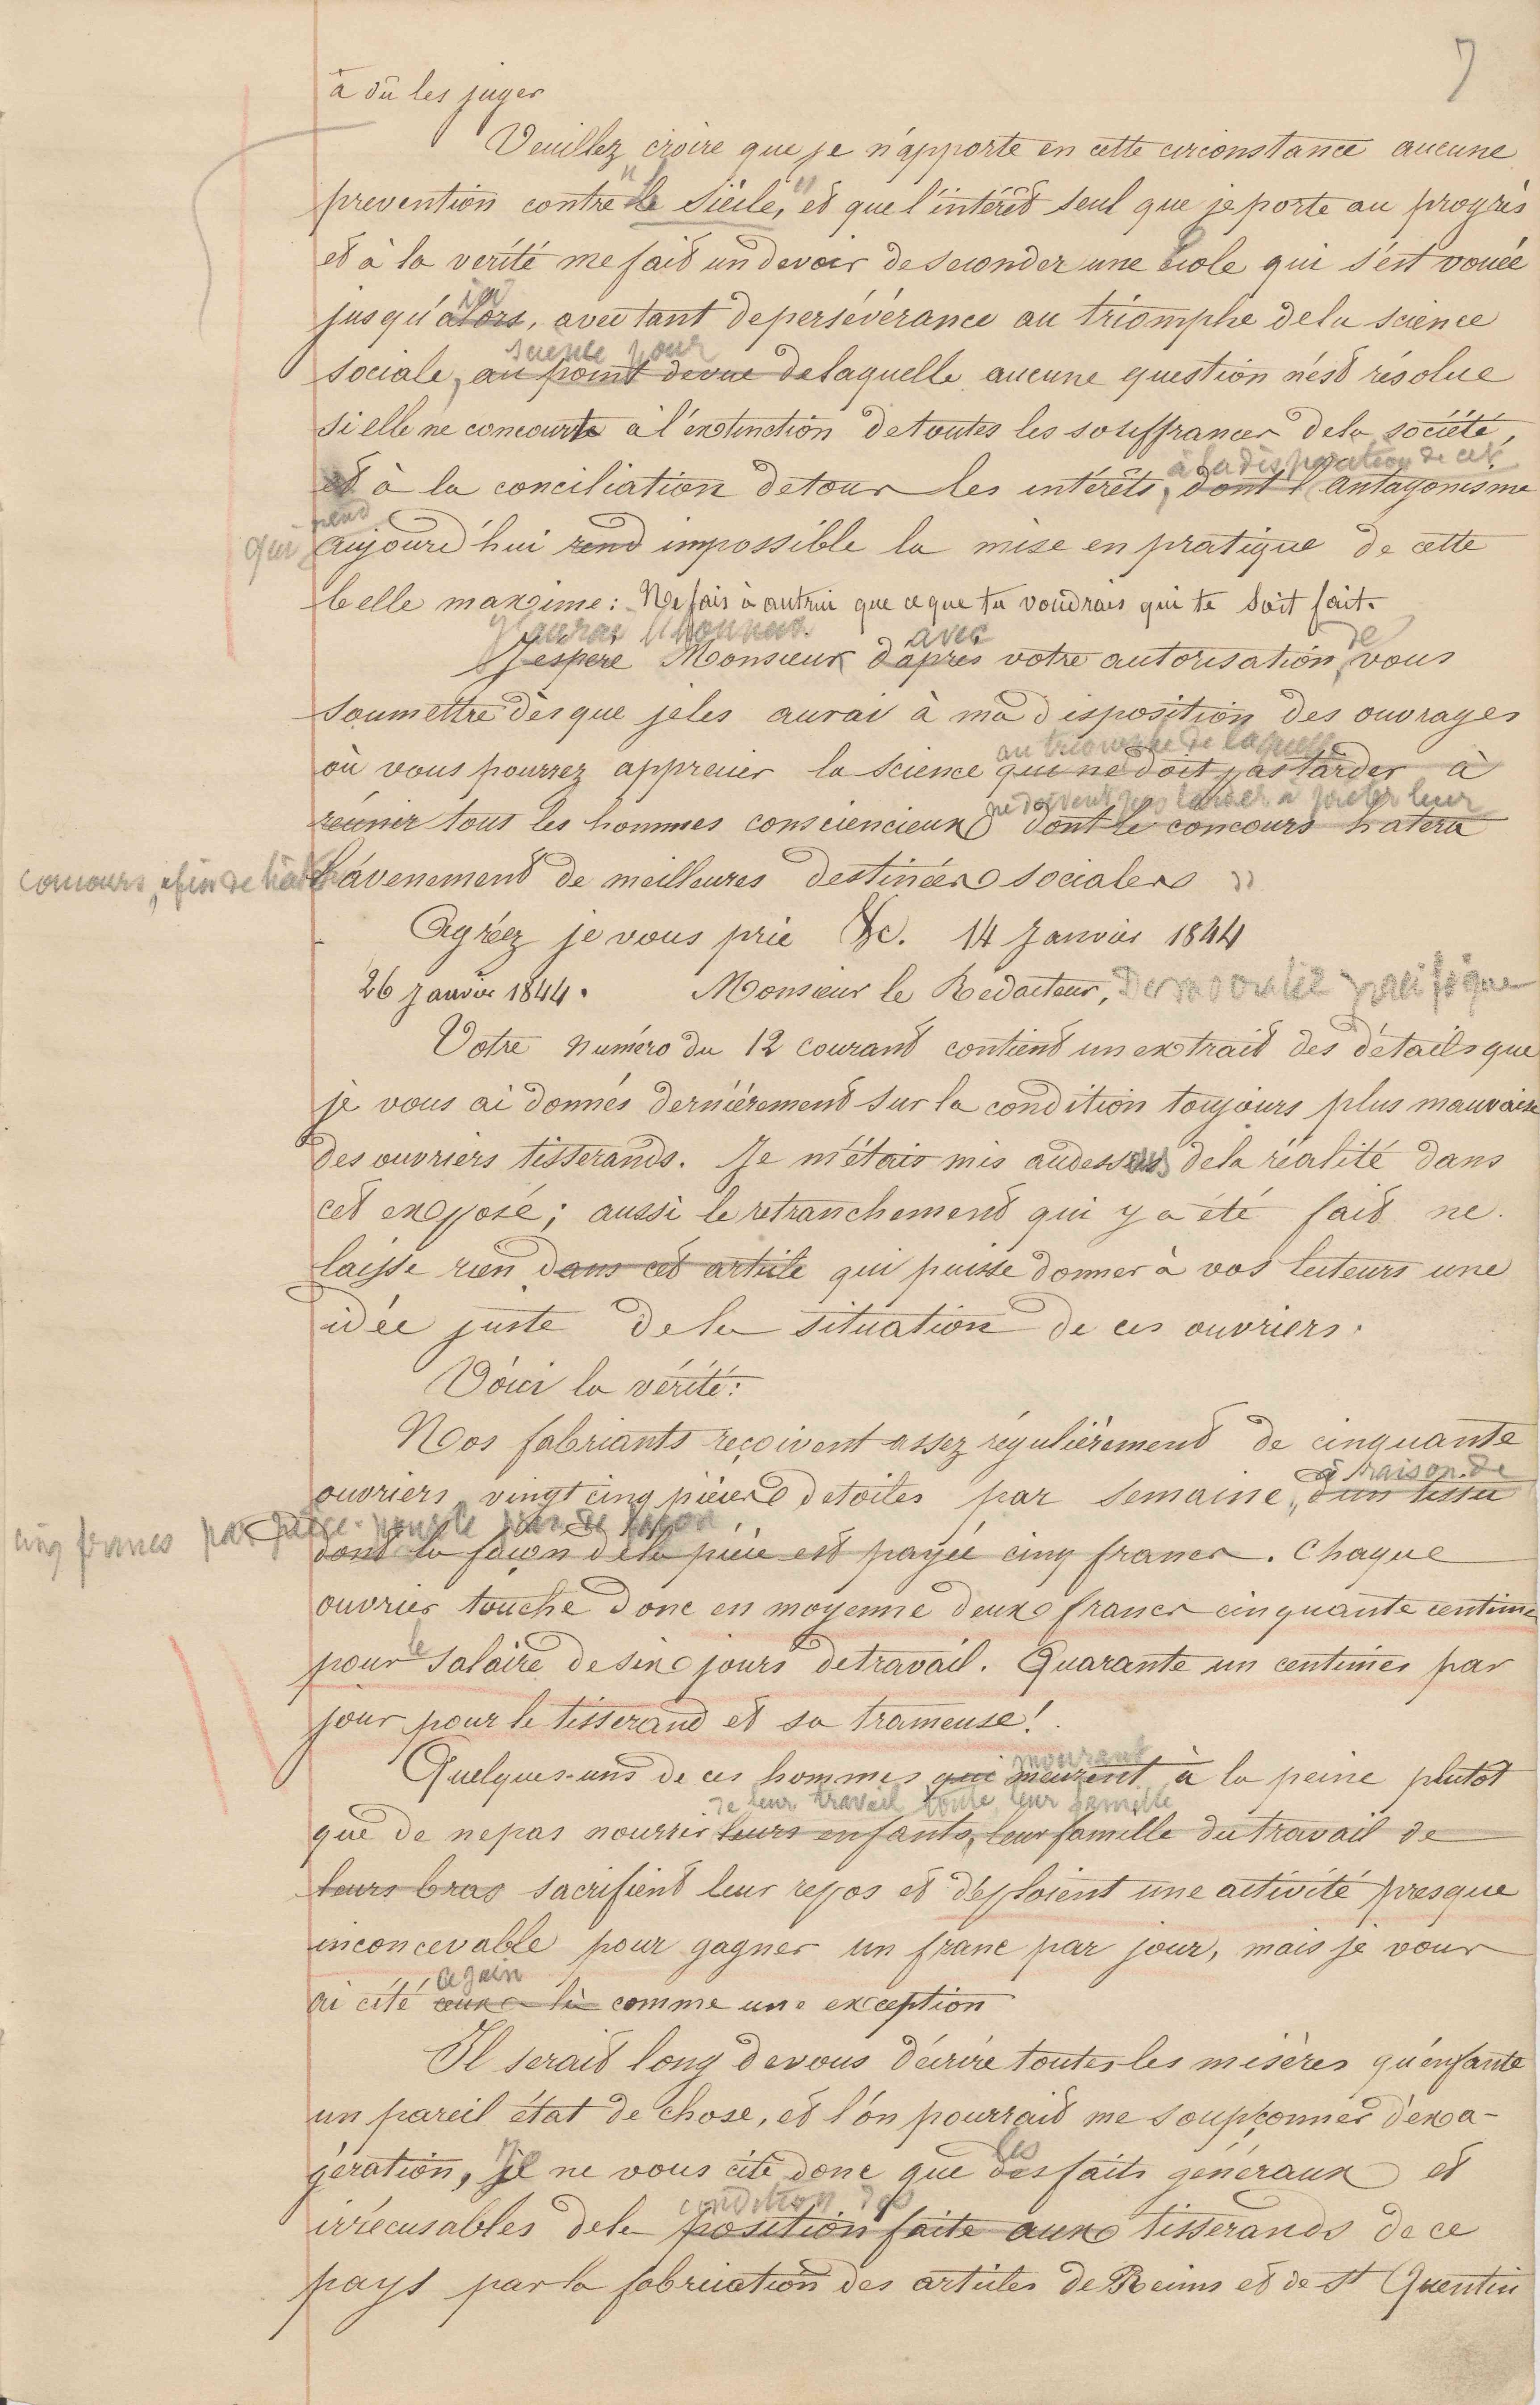 7
à dû les juger
Veuillez croire que je n'apporte en cette circonstance aucune
prevention contre "le Siècle," et que l'intérêt seul que je porte au progrès
et à la verité me fait un devoir de seconder une école qui s'est vouée
ici
jusqu'alors, avec tant de persévérance au triomphe de la science
science pour
sociale, au point de vue de laquelle aucune question n'est résolue
si elle ne concourt à l'extinction de toutes les souffrances de la société,
à la disparation de cet
et à la conciliation de tous les intérêts, dont l'antagonisme
rend
qui aujourd'hui rend impossible la mise en pratique de cette
belle maxime: Ne fais à autrui que ce que tu voudrais qui te soit fait.
J'aurai l'honneur avec de
J'espère Monsieur d'après votre autorisation, vous
soumettre dès que je les aurai à ma disposition des ouvrages
au triomphe de laquelle
où vous pourrez apprecier la Science qui ne doit pas tarder à
ne doivent pas tarder à prêter leur
réunir tous les hommes consciencieux dont le concours hatera
concours, afin de hâter l'avenement de meilleures destinées sociales »
Agréez je vous prie &c. 14 Janvier 1844
26 Janvier 1844. Monsieur le Redacteur, Démocratie pacifique
Votre numéro du 12 courant contient un extrait des détails que
je vous ai donnés dernièrement sur la condition toujours plus mauvaise
des ouvriers tisserands. Je m'étais mis audessous de la réalité dans
cet exposé; aussi le retranchement qui y a été fait ne
laisse rien dans cet article qui puisse donner à vos lecteurs une
idée juste de la situation de ces ouvriers.
Voici la vérité:
Nos fabriants reçoivent assez régulièrement de cinquante
à raison de
ouvriers vingt cinq pièces de toiles par semaine, d'un tissu
cinq francs par pièce pour le prix de façon
dont la façon de la pièce est payée cinq francs. Chaque
ouvrier touche donc en moyenne deux francs cinquante centimes
le
pour salaire de six jours de travail. Quarante un centimes par
jour pour le tisserand et sa trameuse!
mourant
Quelques-uns de ces hommes qui meurent à la peine plutot
de leur travail toute leur famille
que de ne pas nourrir leurs enfants, leur famille du travail de
leurs bras sacrifient leur repos et déploient une activité presque
inconcevable pour gagner un franc par jour, mais je vous
ce gain
ai cité ceux-là comme une exception
Il serait long de vous décrire toutes les misères qu'enfante
un pareil état de chose, et l'on pourrait me soupçonner d'exa-
les
gération, je ne vous cite donc que des faits généraux et
condition des
irrécusables de la position faite aux tisserands de ce
pays par la fabrication des articles de Reims et de St Quentin